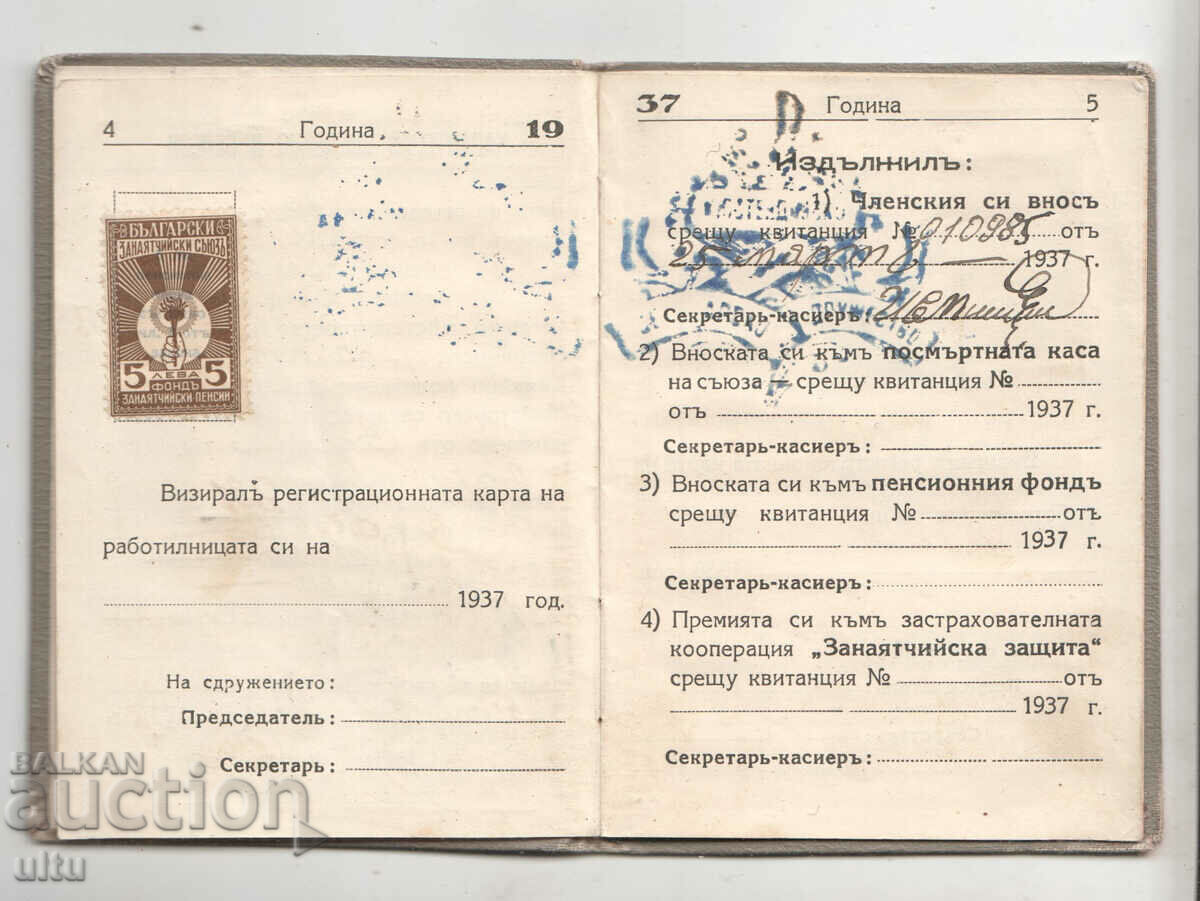 4 Година 19
БЪЛГАРСКИ
ЗАНАЯТЧИЙСКИ СЪЮЗЪ
5 ЛЕВА 5
ФОНДЪ
ЗАНАЯТЧИЙСКИ ПЕНСИИ
Визиралъ регистрационната карта на
работилницата си на
1937 год.
На сдружението:
Председатель:
Секретарь:
37 Година 5
Издължилъ:
1) Членския си вносъ
срещу квитанция № 010985 отъ
25 мартъ 1937 г.
Секретарь-касиеръ:
2) Вноската си къмъ посмъртната каса
на съюза — срещу квитанция №
отъ 1937 г.
Секретарь-касиеръ:
3) Вноската си къмъ пенсионния фондъ
срещу квитанция № отъ
1937 г.
Секретарь-касиеръ:
4) Премията си къмъ застрахователната
кооперация „Занаятчийска защита“
срещу квитанция № отъ
1937 г.
Секретарь-касиеръ:
BALKAN
auction
ultu